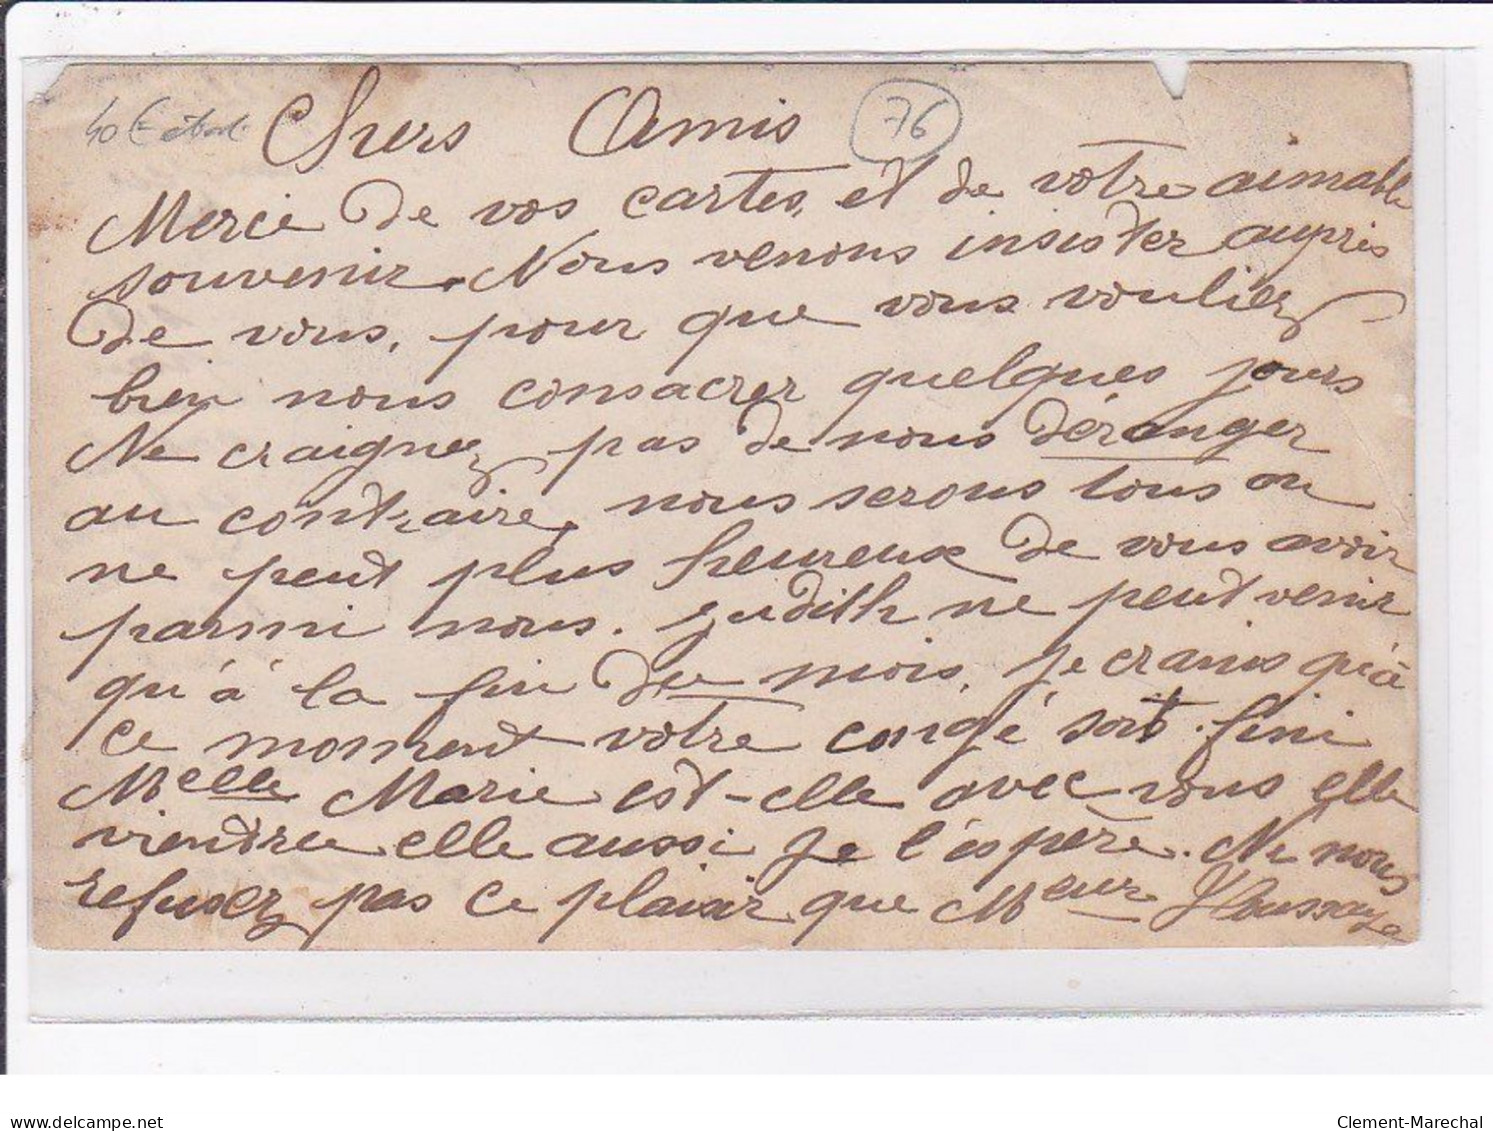 40 €
76
Chers Amis
Merci de vos cartes, et de votre aimable
souvenir. Nous venons insister auprès
de vous, pour que vous vouliez
bien nous consacrer quelques jours
Ne craignez pas de nous déranger
au contraire, nous serons tous on
ne peut plus heureux de vous avoir
parmi nous. Judith ne peut venir
qu'à la fin du mois, je crains qu'à
ce moment votre congé soit fini
Melle Marie est-elle avec vous elle
viendra elle aussi je l'espère. Ne nous
refusez pas ce plaisir que Meur Houssaye
delcampe.net
Clement-Marechal